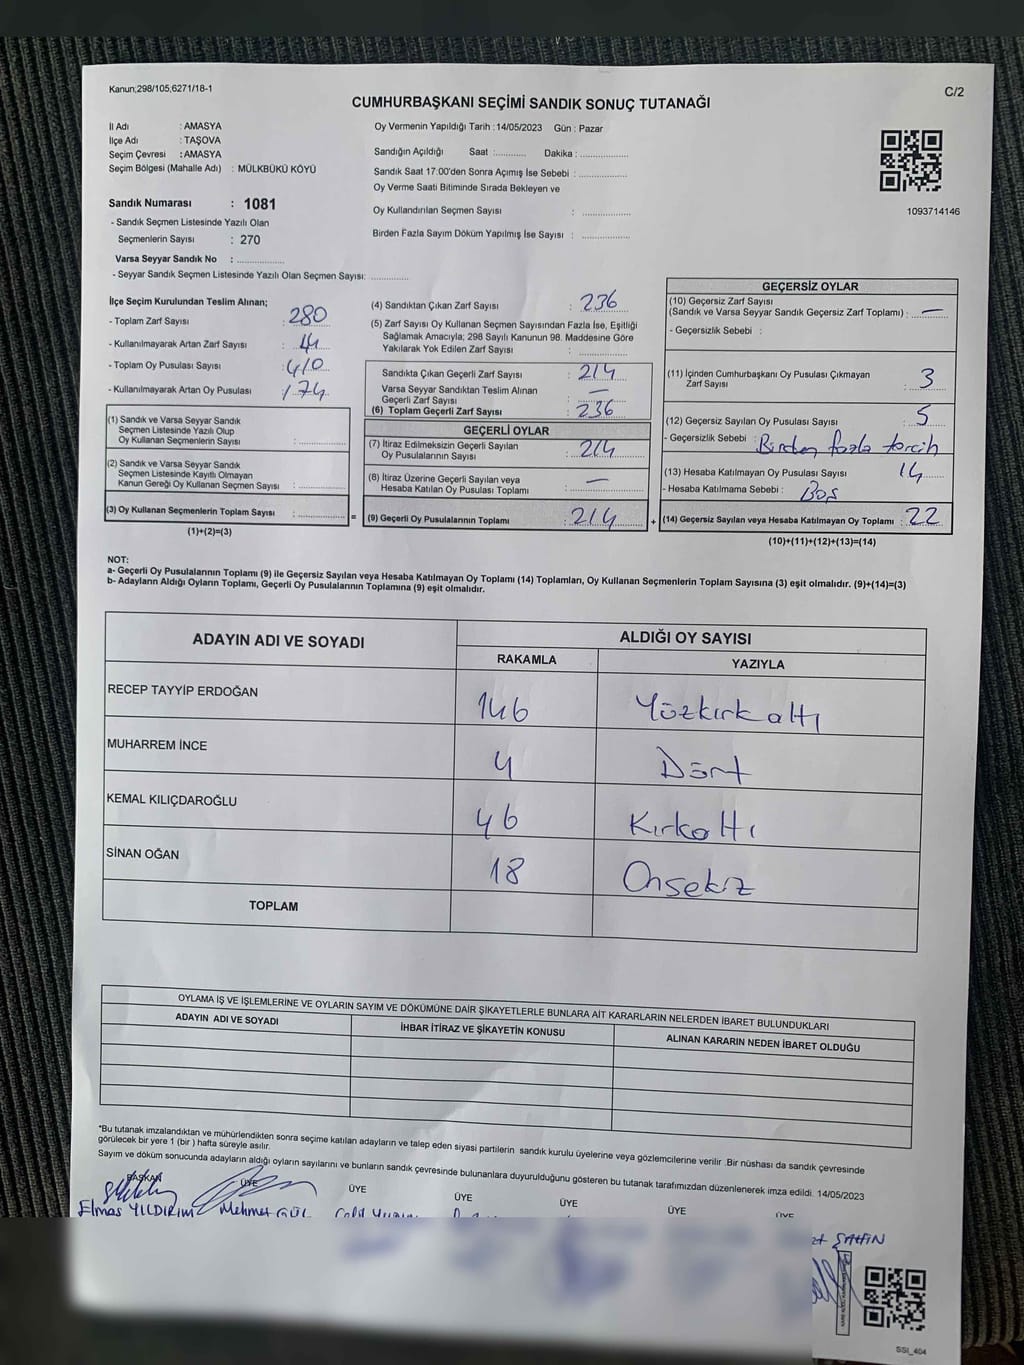 Kanun;298/105,6271/18-1
C/2
CUMHURBAŞKANI SEÇİMİ SANDIK SONUÇ TUTANAĞI
İl Adı : AMASYA
İlçe Adı : TAŞOVA
Seçim Çevresi : AMASYA
Seçim Bölgesi (Mahalle Adı) : MÜLKBÜKÜ KÖYÜ
Oy Vermenin Yapıldığı Tarih :14/05/2023 Gün : Pazar
Sandığın Açıldığı Saat :............ Dakika :....................
Sandık Saat 17.00'den Sonra Açımış İse Sebebi :....................
Oy Verme Saati Bitiminde Sırada Bekleyen ve
Oy Kullandırılan Seçmen Sayısı : ....................
Birden Fazla Sayım Döküm Yapılmış İse Sayısı : ....................
1093714146
Sandık Numarası : 1081
- Sandık Seçmen Listesinde Yazılı Olan
Seçmenlerin Sayısı : 270
Varsa Seyyar Sandık No : ....................
- Seyyar Sandık Seçmen Listesinde Yazılı Olan Seçmen Sayısı: ...............
İlçe Seçim Kurulundan Teslim Alınan;
- Toplam Zarf Sayısı : 280
- Kullanılmayarak Artan Zarf Sayısı : 44
- Toplam Oy Pusulası Sayısı : 410
- Kullanılmayarak Artan Oy Pusulası : 174
(1) Sandık ve Varsa Seyyar Sandık
Seçmen Listesinde Yazılı Olup
Oy Kullanan Seçmenlerin Sayısı : ....................
(2) Sandık ve Varsa Seyyar Sandık
Seçmen Listesinde Kayıtlı Olmayan
Kanun Gereği Oy Kullanan Seçmen Sayısı : ....................
(3) Oy Kullanan Seçmenlerin Toplam Sayısı : ....................
(1)+(2)=(3)
=
(4) Sandıktan Çıkan Zarf Sayısı : 236
(5) Zarf Sayısı Oy Kullanan Seçmen Sayısından Fazla İse, Eşitliği
Sağlamak Amacıyla; 298 Sayılı Kanunun 98. Maddesine Göre
Yakılarak Yok Edilen Zarf Sayısı : ....................
Sandıkta Çıkan Geçerli Zarf Sayısı : 214
Varsa Seyyar Sandıktan Teslim Alınan
Geçerli Zarf Sayısı : —
(6) Toplam Geçerli Zarf Sayısı : 236
GEÇERLİ OYLAR
(7) İtiraz Edilmeksizin Geçerli Sayılan
Oy Pusulalarının Sayısı : 214
(8) İtiraz Üzerine Geçerli Sayılan veya
Hesaba Katılan Oy Pusulası Toplamı : —
(9) Geçerli Oy Pusulalarının Toplamı : 214
+
GEÇERSİZ OYLAR
(10) Geçersiz Zarf Sayısı
(Sandık ve Varsa Seyyar Sandık Geçersiz Zarf Toplamı) : —
- Geçersizlik Sebebi :
(11) İçinden Cumhurbaşkanı Oy Pusulası Çıkmayan
Zarf Sayısı : 3
(12) Geçersiz Sayılan Oy Pusulası Sayısı : 5
- Geçersizlik Sebebi : Birden fazla tercih
(13) Hesaba Katılmayan Oy Pusulası Sayısı 14
- Hesaba Katılmama Sebebi : Boş
(14) Geçersiz Sayılan veya Hesaba Katılmayan Oy Toplamı : 22
(10)+(11)+(12)+(13)=(14)
NOT:
a- Geçerli Oy Pusulalarının Toplamı (9) ile Geçersiz Sayılan veya Hesaba Katılmayan Oy Toplamı (14) Toplamları, Oy Kullanan Seçmenlerin Toplam Sayısına (3) eşit olmalıdır. (9)+(14)=(3)
b- Adayların Aldığı Oyların Toplamı, Geçerli Oy Pusulalarının Toplamına (9) eşit olmalıdır.
ADAYIN ADI VE SOYADI
ALDIĞI OY SAYISI
RAKAMLA
YAZIYLA
RECEP TAYYİP ERDOĞAN 146 Yüzkırkaltı
MUHARREM İNCE 4 Dört
KEMAL KILIÇDAROĞLU 46 Kırkaltı
SİNAN OĞAN 18 Onsekiz
TOPLAM
OYLAMA İŞ VE İŞLEMLERİNE VE OYLARIN SAYIM VE DÖKÜMÜNE DAİR ŞİKAYETLERLE BUNLARA AİT KARARLARIN NELERDEN İBARET BULUNDUKLARI
ADAYIN ADI VE SOYADI
İHBAR İTİRAZ VE ŞİKAYETİN KONUSU
ALINAN KARARIN NEDEN İBARET OLDUĞU
*Bu tutanak imzalandıktan ve mühürlendikten sonra seçime katılan adayların ve talep eden siyasi partilerin sandık kurulu üyelerine veya gözlemcilerine verilir .Bir nüshası da sandık çevresinde
görülecek bir yere 1 (bir ) hafta süreyle asılır.
Sayım ve döküm sonucunda adayların aldığı oyların sayılarını ve bunların sandık çevresinde bulunanlara duyurulduğunu gösteren bu tutanak tarafımızdan düzenlenerek imza edildi. 14/05/2023
BAŞKAN
ÜYE
ÜYE
ÜYE
ÜYE
ÜYE
ÜYE
Elmas YILDIRIM
Mehmet GÜL
ŞAHİN
SSI_404